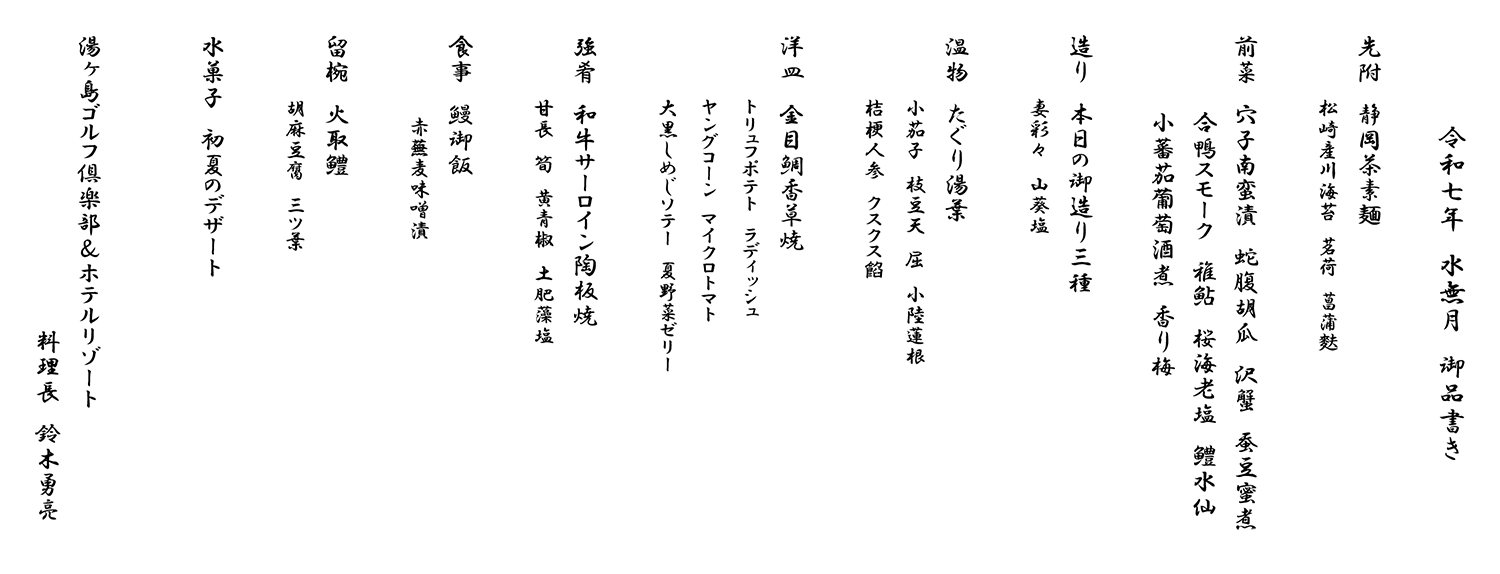 令和七年　水無月　御品書き
先附　静岡茶素麺
松崎産川海苔　茗荷　菖蒲麩
前菜　穴子南蛮漬　蛇腹胡瓜　沢蟹　蚕豆蜜煮
合鴨スモーク　稚鮎　桜海老塩　鱧水仙
小蕃茄葡萄酒煮　香り梅
造り　本日の御造り三種
妻彩々　山葵塩
温物　たぐり湯葉
小茄子　枝豆天　屈　小陸蓮根
桔梗人参　クスクス餡
洋皿　金目鯛香草焼
トリュフポテト　ラディッシュ
ヤングコーン　マイクロトマト
大黒しめじソテー　夏野菜ゼリー
強肴　和牛サーロイン陶板焼
甘長　筍　黄青椒　土肥藻塩
食事　鰻御飯
赤蕪麦味噌漬
留椀　火取鱧
胡麻豆腐　三ツ葉
水菓子　初夏のデザート
湯ヶ島ゴルフ倶楽部＆ホテルリゾート
料理長　鈴木勇亮